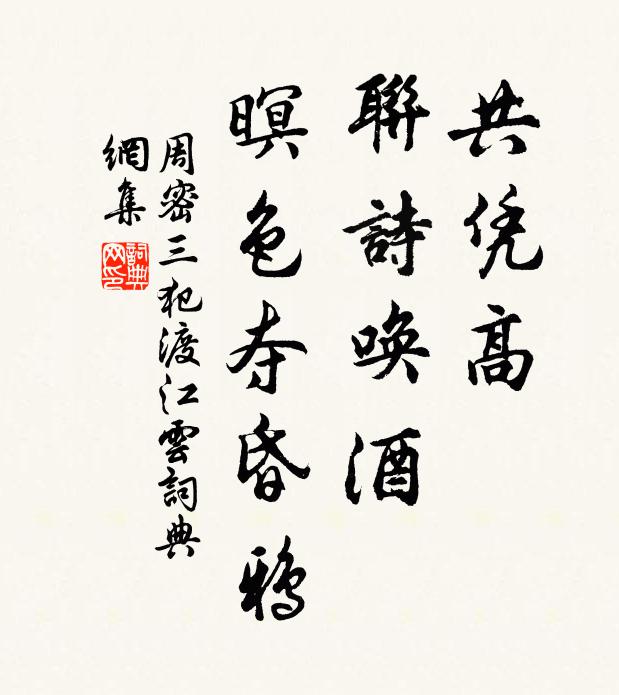 共凭高
聯詩唤酒
暝色夺昏鴉
周密三犯渡江雲詞典
網集
詞典
网印